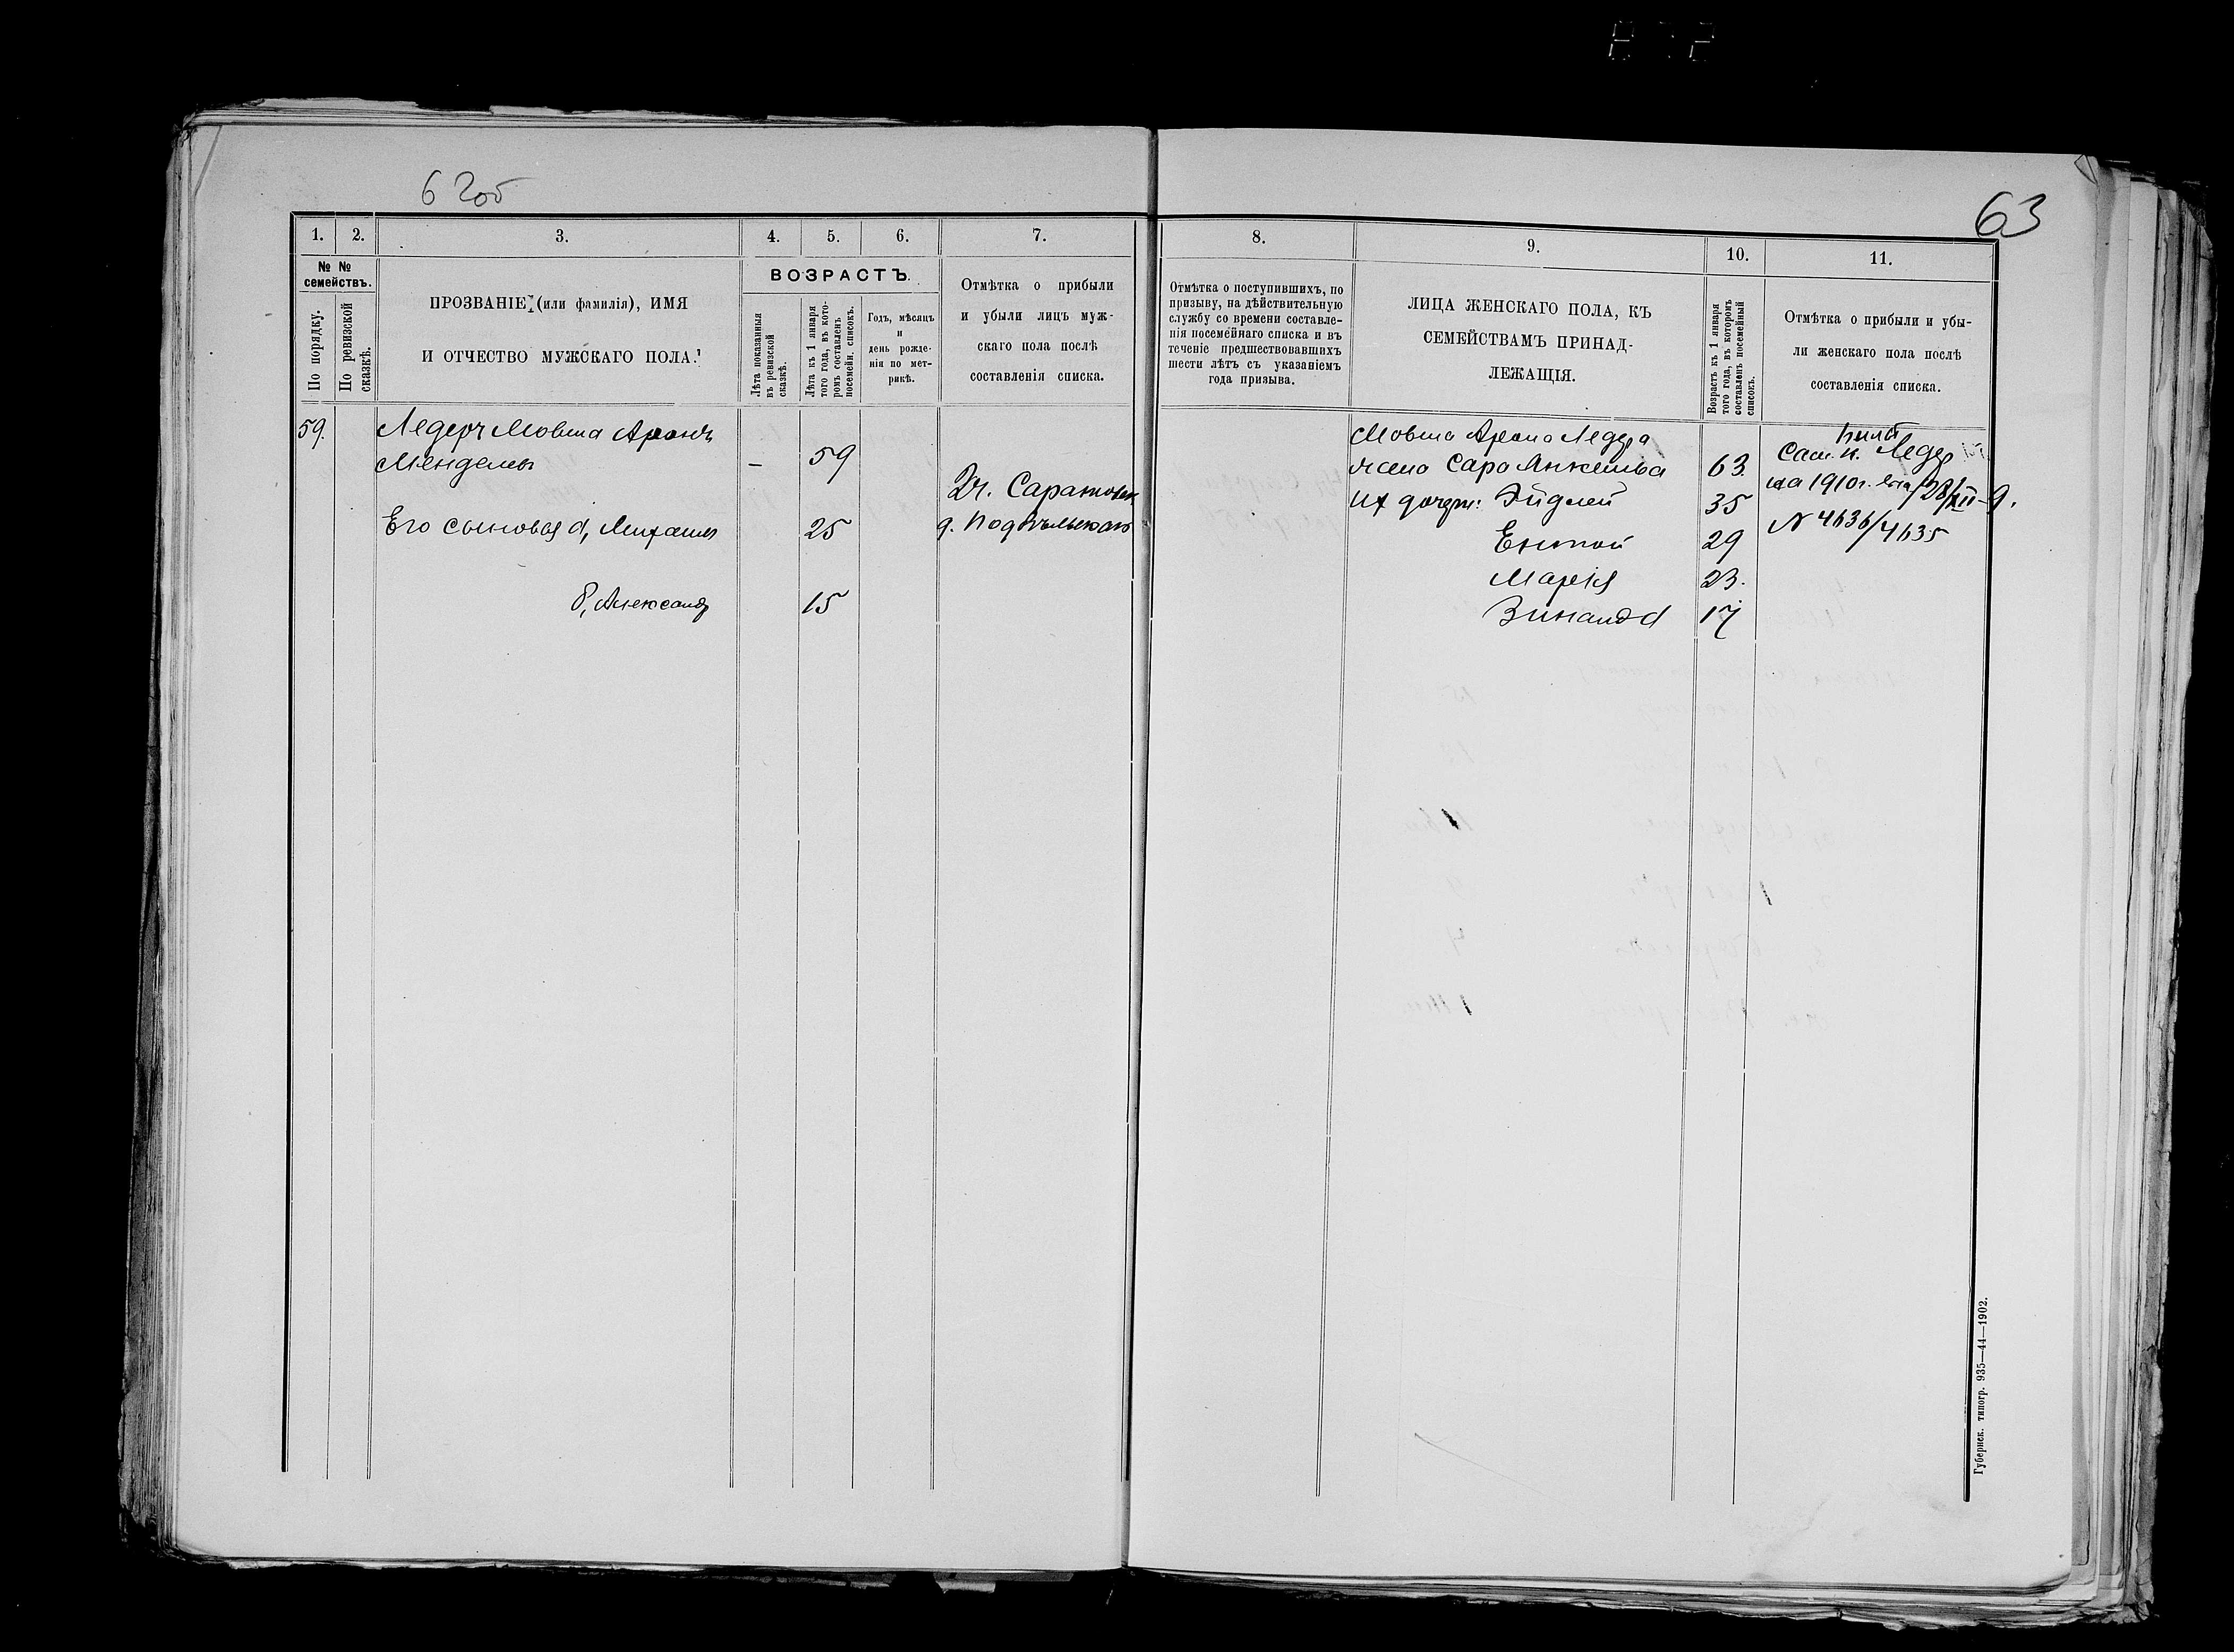 62об
63
1.
2.
3.
4.
5.
6.
7.
8.
9.
10.
11.
№ №
семействъ.
По порядку.
По ревизской
сказкѣ.
ПРОЗВАНІЕ (или фамилія), ИМЯ
И ОТЧЕСТВО МУЖСКАГО ПОЛА.
ВОЗРАСТЪ.
Лѣта показанныя
въ ревизской
сказкѣ.
Лѣта къ 1 января
того года, въ кото-
ромъ составленъ
посемейн. списокъ.
Годъ, мѣсяцъ
и
день рожде-
нія по мет-
рикѣ.
Отмѣтка о прибыли
и убыли лицъ муж-
скаго пола послѣ
составленія списка.
Отмѣтка о поступившихъ, по
призыву, на дѣйствительную
службу со времени составле-
нія посемейнаго списка и въ
теченіе предшествовавшихъ
шести лѣтъ съ указаніемъ
года призыва.
ЛИЦА ЖЕНСКАГО ПОЛА, КЪ
СЕМЕЙСТВАМЪ ПРИНАД-
ЛЕЖАЩІЯ.
Возрастъ къ 1 января
того года, въ которомъ
составленъ посемейный
списокъ.
Отмѣтка о прибыли и убы-
ли женскаго пола послѣ
составленія списка.
59.
Ледеръ Мовша Аронъ
Менделевъ
–
59
Его сыновья а, Михаилъ
25
б, Александр
15
Мовша Арона Ледера
жена Сара Янкельва
63
Их дочери: Эйдлей
35
Ентой
29
Марія
23.
Зинаида
17
Ледер
на 1910г.
28/XII–9.
N 4636/4635
Губернск. типогр. 935—44—1902.